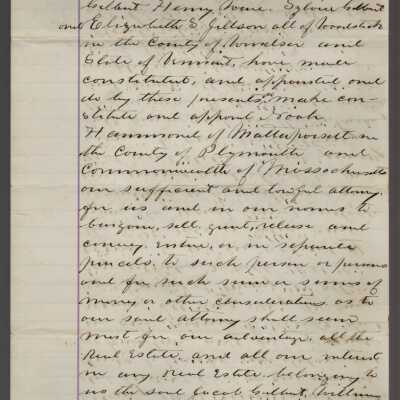 Gilbert Henry Sylvia Gilbert
and Elizabeth S. Gillson all of Woodstock
in the County of Windsor and
State of Vermont, have made
constituted, and appointed and
do by these presents make con-
stitute and appoint Noah
Hammond of Mattapoisett in
the County of Plymouth and
Commonwealth of Massachusetts
our sufficient and lawful attorney
for us and in our names to
bargain, sell, grant, release and
convey, entire, or in separate
parcels to such person or persons
and for such sum or sums of
money or other considerations as to
our said attorney shall seem
most for our advantage, all the
Real Estate and all our interest
in any Real Estate belonging to
us the said Jacob Gilbert, William